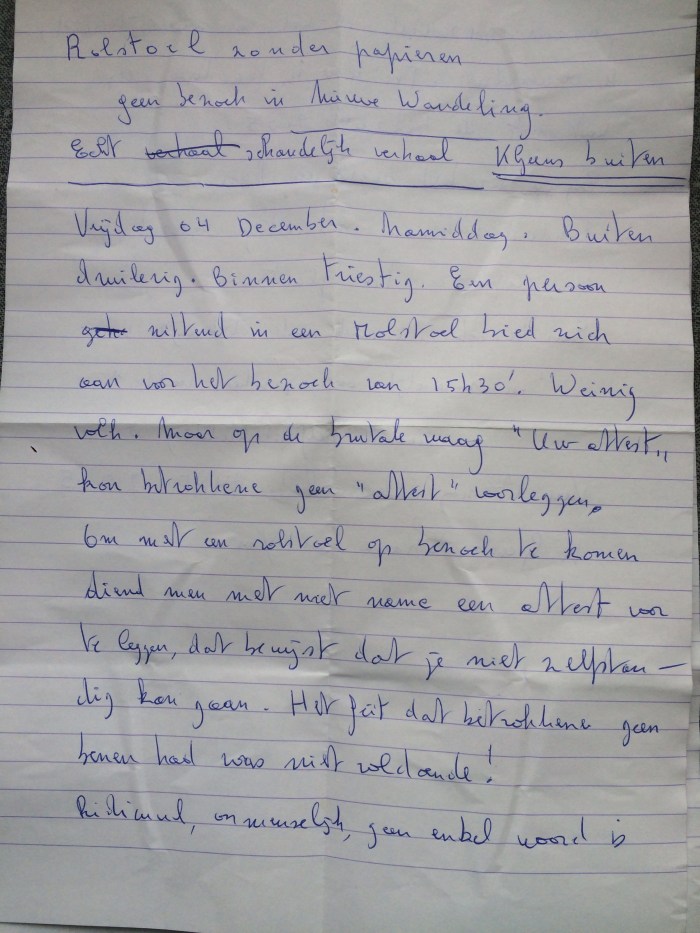 Rolstoel zonder papieren
geen bezoek in Nieuwe Wandeling.
Echt verhaal schandelijk verhaal Klaus buiten
Vrijdag 04 December. Namiddag. Buiten
druilerig. Binnen triestig. Een persoon
zittend in een Rolstoel bied zich
aan voor het bezoek van 15h30'. Weinig
volk. Maar op de brutale vraag "Uw attest"
kon betrokkene geen "attest" voorleggen.
Om met een rolstoel op bezoek te komen
diend men met met name een attest voor
te leggen, dat bewijst dat je niet zelfstan-
dig kan gaan. Het feit dat betrokkene geen
benen had was niet voldoende!
Ridicuul, onmenselijk, geen enkel woord is